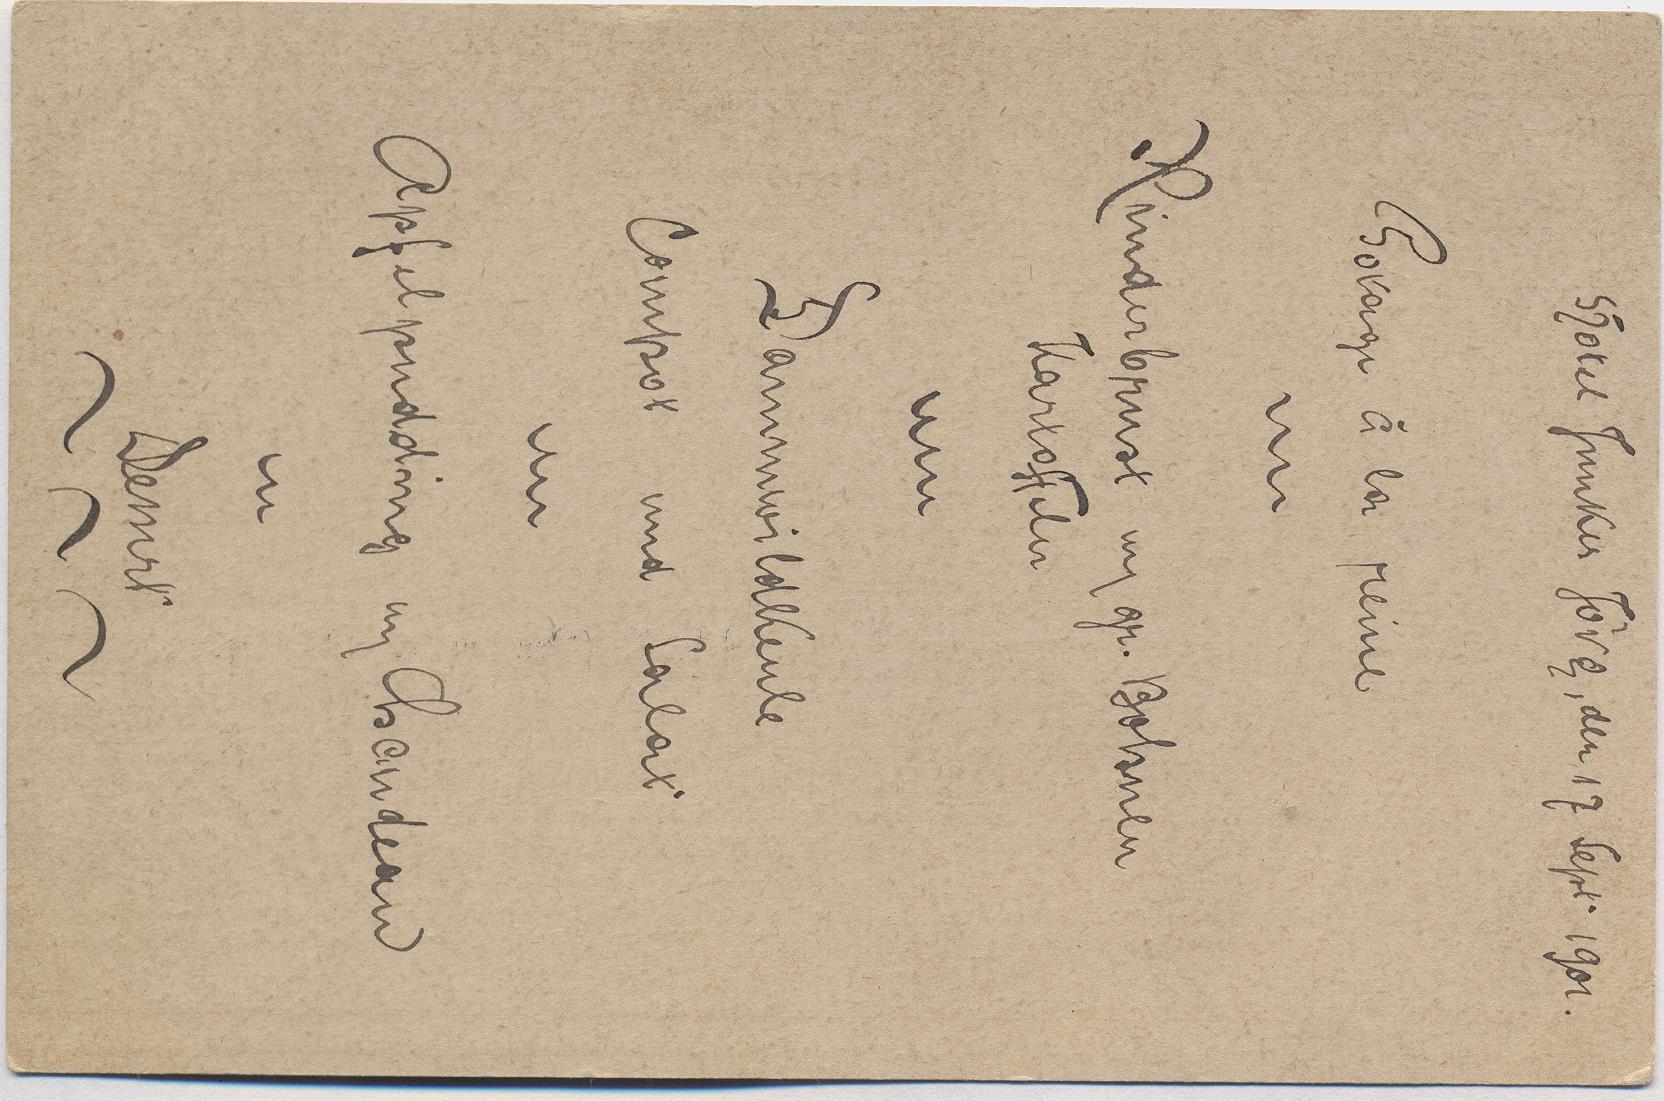 Hotel Junker Jörg, den 17 Sept. 1901.
Potage à la reine
Rinderbrust m gr. Bohnen
Kartoffeln
Dammwildkeule
Compot und Salat.
Apfelpudding m Chaudeau
Dessert